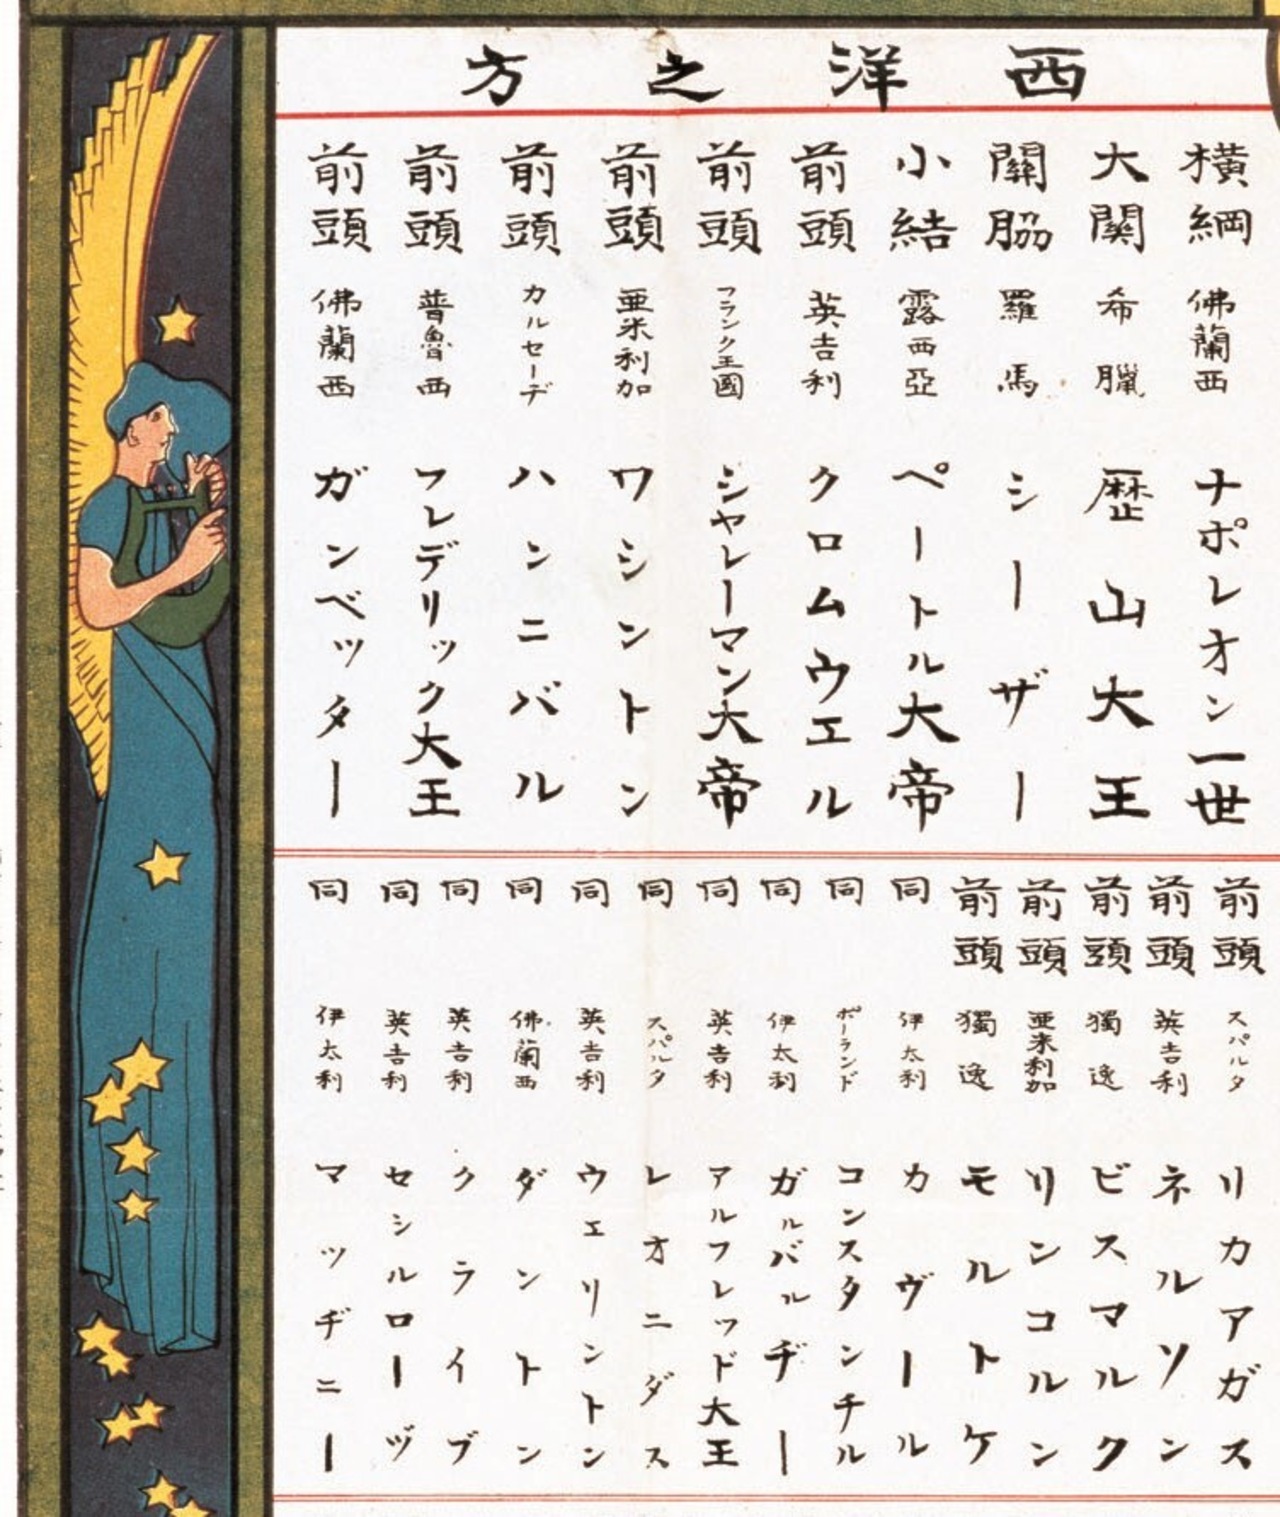 西洋之方
横綱 佛蘭西 ナポレオン一世
大關 希臘 歴山大王
關脇 羅馬 シーザー
小結 露西亞 ペートル大帝
前頭 英吉利 クロムウエル
前頭 フランク王國 シャレーマン大帝
前頭 亜米利加 ワシントン
前頭 カルセーヂ ハンニバル
前頭 普魯西 フレデリック大王
前頭 佛蘭西 ガンベッター
前頭 スパルタ リカアガス
前頭 英吉利 ネルソン
前頭 獨逸 ビスマルク
前頭 亜米利加 リンコルン
前頭 獨逸 モルトケ
同 伊太利 カヴール
同 ポーランド コンスタンチル
同 伊太利 ガルバルヂー
同 英吉利 アルフレッド大王
同 スパルタ レオニダス
同 英吉利 ウェリントン
同 佛蘭西 ダントン
同 英吉利 クライブ
同 英吉利 セシルローヅ
同 伊太利 マッヂニー